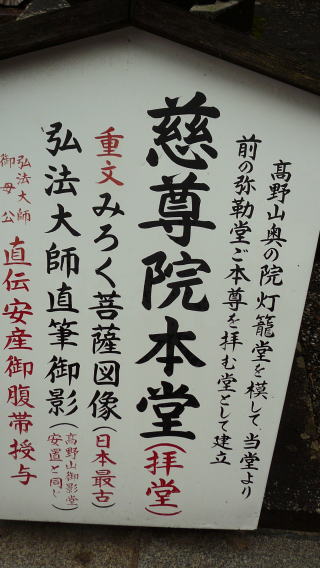 高野山奥の院灯籠堂を模して、当堂より
前の弥勒堂ご本尊を拝む堂として建立
慈尊院本堂(拝堂)
重文みろく菩薩図像(日本最古)
弘法大師直筆御影(高野山御影堂
安置と同じ)
弘法大師
御母公
直伝安産御腹帯授与